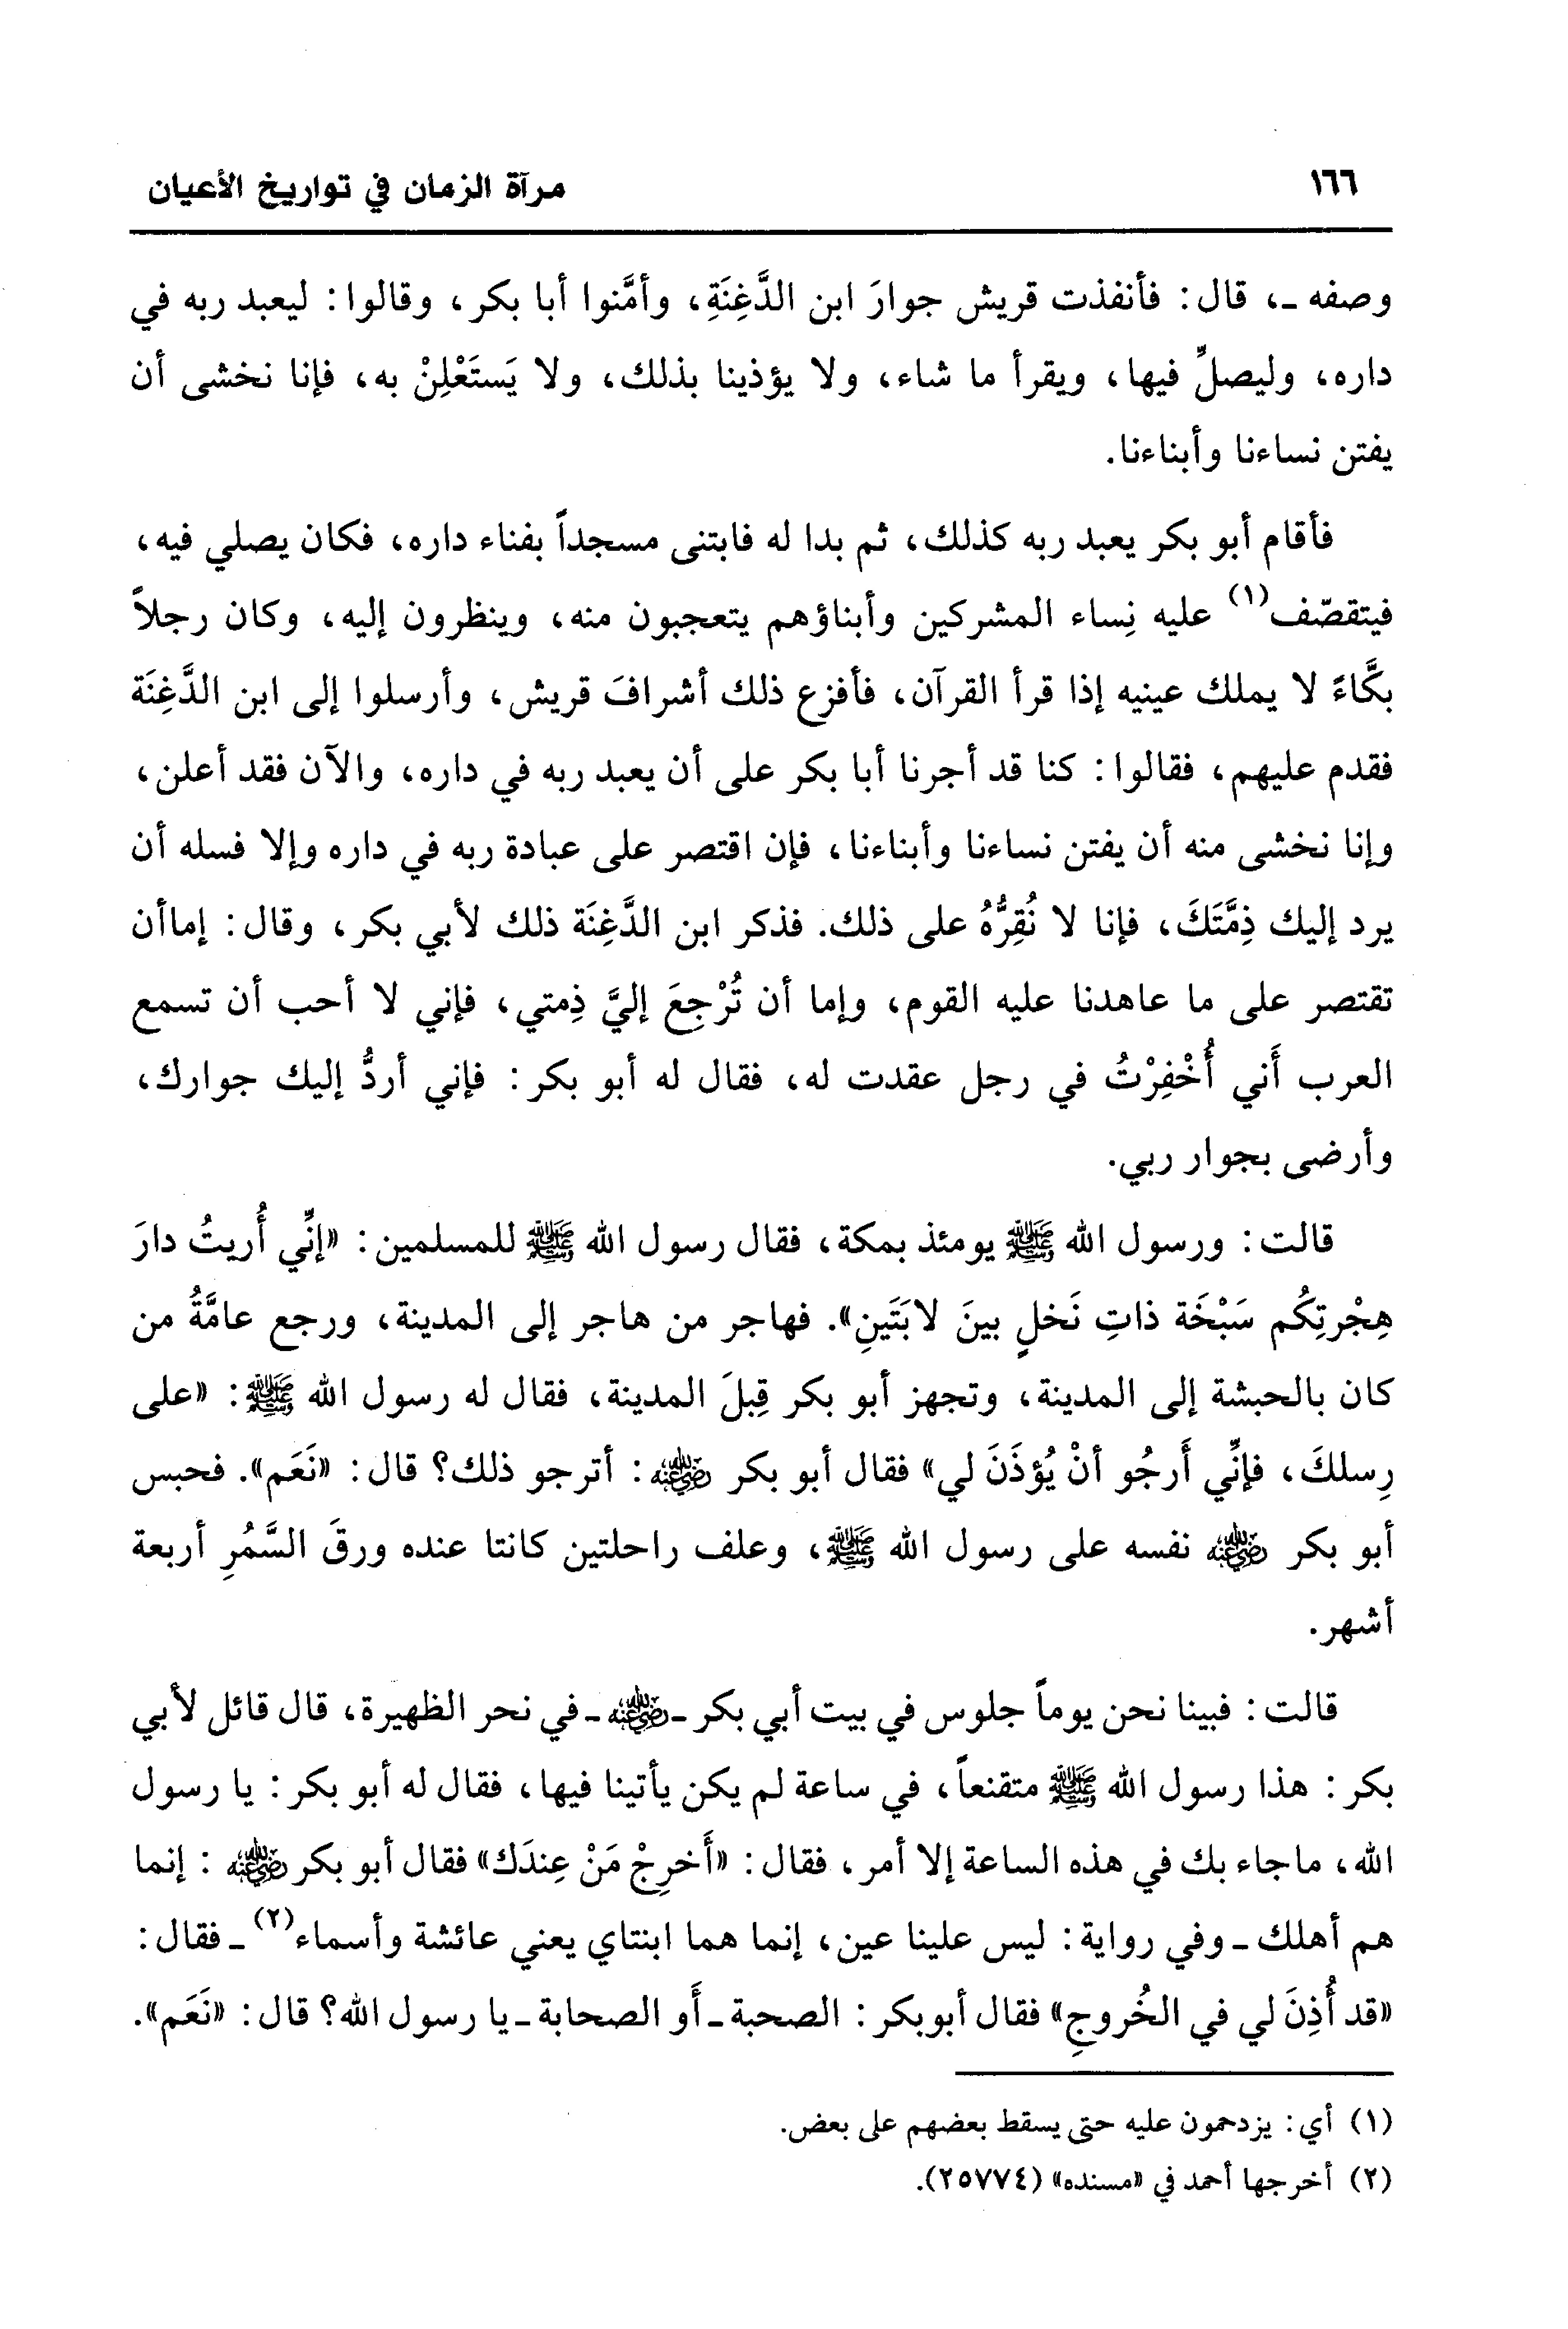 ١٦٦ مرآة الزمان في تواريخ الأعيان
وصفه ـ، قال: فأنفذت قريش جوارَ ابن الدَّغِنَةِ، وأمَّنوا أبا بكر، وقالوا: ليعبد ربه في
داره، وليصلِّ فيها، ويقرأ ما شاء، ولا يؤذينا بذلك، ولا يَستَعْلِنْ به، فإنا نخشى أن
يفتن نساءنا وأبناءنا.
فأقام أبو بكر يعبد ربه كذلك، ثم بدا له فابتنى مسجداً بفناء داره، فكان يصلي فيه،
فيتقصّف(١) عليه نِساء المشركين وأبناؤهم يتعجبون منه، وينظرون إليه، وكان رجلاً
بكَّاءً لا يملك عينيه إذا قرأ القرآن، فأفزع ذلك أشرافَ قريش، وأرسلوا إلى ابن الدَّغِنَة
فقدم عليهم، فقالوا: كنا قد أجرنا أبا بكر على أن يعبد ربه في داره، والآن فقد أعلن،
وإنا نخشى منه أن يفتن نساءنا وأبناءنا، فإن اقتصر على عبادة ربه في داره وإلا فسله أن
يرد إليك ذِمَّتَكَ، فإنا لا نُقِرُّهُ على ذلك. فذكر ابن الدَّغِنَة ذلك لأبي بكر، وقال: إماأن
تقتصر على ما عاهدنا عليه القوم، وإما أن تُرْجِعَ إليَّ ذِمتي، فإني لا أحب أن تسمع
العرب أَني أُخْفِرْتُ في رجل عقدت له، فقال له أبو بكر: فإني أردُّ إليك جوارك،
وأرضى بجوار ربي.
قالت: ورسول الله ﷺ يومئذ بمكة، فقال رسول الله ﷺ للمسلمين: «إنِّي أُريتُ دارَ
هِجْرتِكُم سَبْخَة ذاتِ نَخلٍ بينَ لابَتَينِ». فهاجر من هاجر إلى المدينة، ورجع عامَّةُ من
كان بالحبشة إلى المدينة، وتجهز أبو بكر قِبلَ المدينة، فقال له رسول الله ﷺ: «على
رِسلكَ، فإنِّي أَرجُو أنْ يُؤذَنَ لي» فقال أبو بكر رضي الله عنه: أترجو ذلك؟ قال: «نَعَم». فحبس
أبو بكر رضي الله عنه نفسه على رسول الله ﷺ، وعلف راحلتين كانتا عنده ورقَ السَّمُرِ أربعة
أشهر.
قالت: فبينا نحن يوماً جلوس في بيت أبي بكر ـ رضي الله عنه ـ في نحر الظهيرة، قال قائل لأبي
بكر: هذا رسول الله ﷺ متقنعاً، في ساعة لم يكن يأتينا فيها، فقال له أبو بكر: يا رسول
الله، ماجاء بك في هذه الساعة إلا أمر، فقال: «أَخرِجْ مَنْ عِندَك» فقال أبو بكر رضي الله عنه: إنما
هم أهلك ـ وفي رواية: ليس علينا عين، إنما هما ابنتاي يعني عائشة وأسماء(٢) ـ فقال:
«قد أُذِنَ لي في الخُروجِ» فقال أبوبكر: الصحبة ـ أَو الصحابة ـ يا رسول الله؟ قال: «نَعَم».
(١) أي: يزدحمون عليه حتى يسقط بعضهم على بعض.
(٢) أخرجها أحمد في «مسنده» (٢٥٧٧٤).